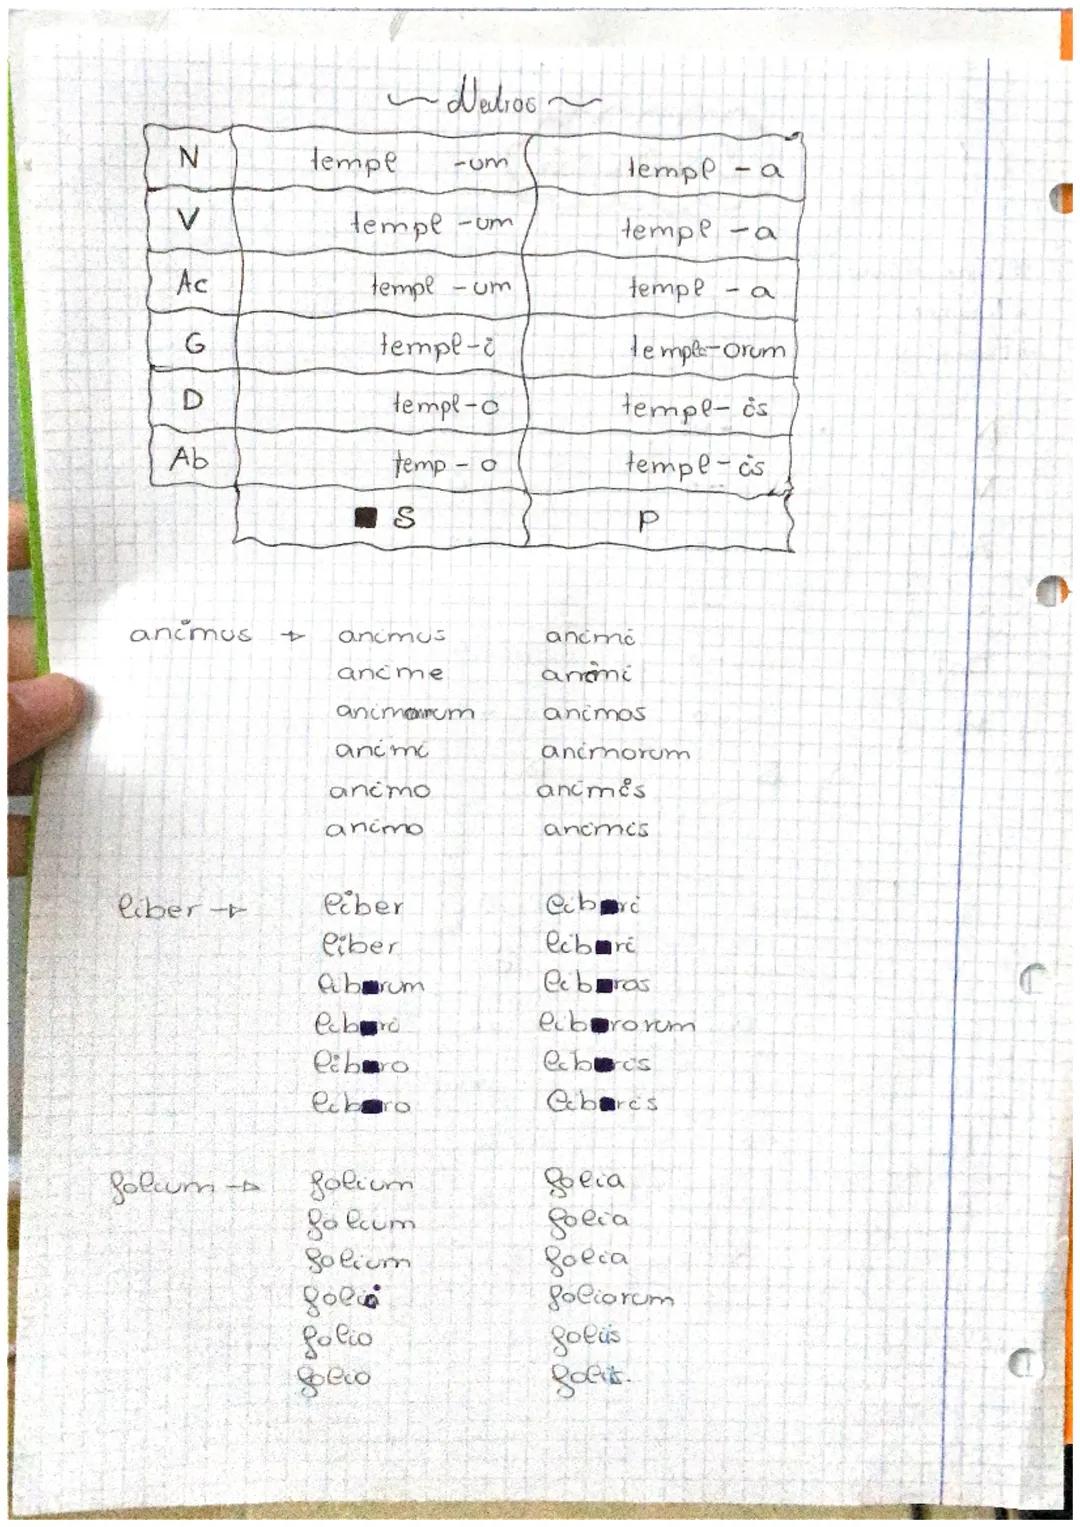 ~ Neutros ~
N templ -um templ -a
V templ -um templ -a
Ac templ -um templ -a
G templ-i templ-orum
D templ-o templ-is
Ab temp-o templ-is
S P
animus → animus animi
anime animi
animos
animi animorum
animo animis
animo animis
liber → liber libri
liber libri
librum libros
libri librorum
libro libris
libro libris
folium → folium folia
folium folia
folium folia
folii foliorum
folio foliis
folio